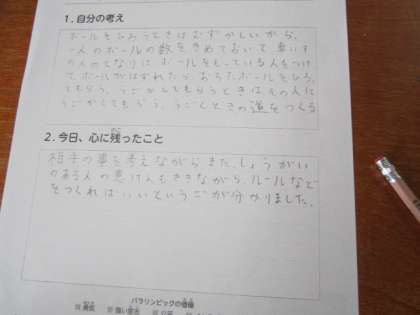 1. 自分の考え
ボールをひろうときはむずかしいから、
一人のボールの数をきめておいて車いす
の人のとなりにボールをもっている人をつけ
てボールがはずれたらおちたボールをひろっ
てもらう。うごかしてもらうときはその人に
うごかしてもらう。うごくときの道をつくる
2. 今日、心に残ったこと
相手の事を考えながらきた。しょうがい
のある人の意けんもききながら、ルールなど
をつくればいいというこが分かりました。
パラリンピックの価値
勇気 強い意志